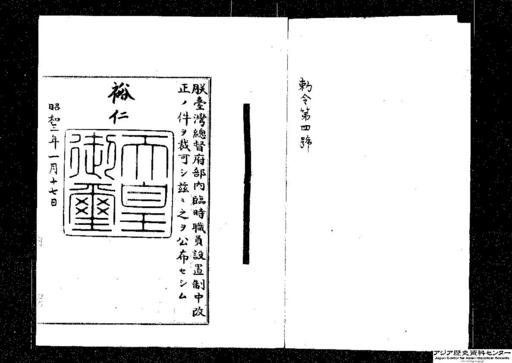 勅令第四號
朕臺灣總督府部內臨時職員設置制中改
正ノ件ヲ裁可シ茲ニ之ヲ公布セシム
裕仁
天皇
御璽
昭和三年一月十七日
アジア歴史資料センター
Japan Center for Asian Historical Records